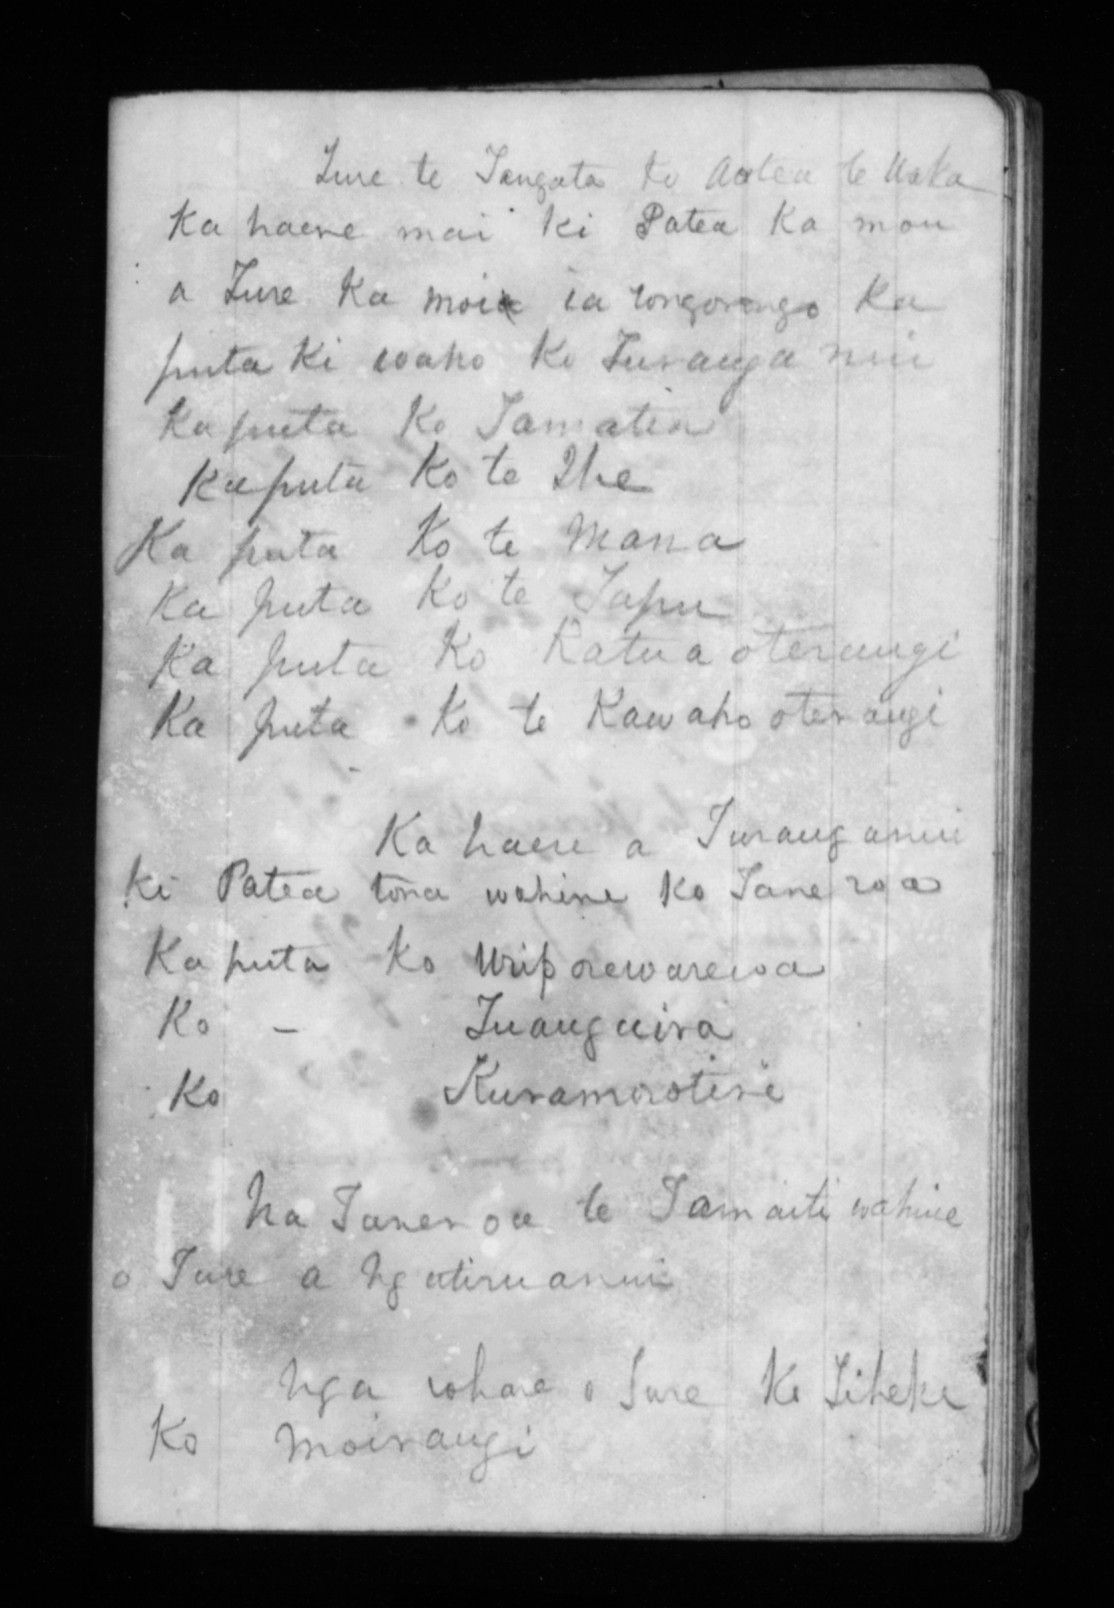 Ture te Tangata ko Aotea te Waka
Ka haere mai ki Patea Ka mou
a Ture Ka moi ia rongorongo Ka
puta ki waho ko Turanga nui
Ka puta Ko Tamatea
Ka puta Ko te Ihe
Ka puta Ko te Mana
Ka puta Ko te Tapu
Ka puta Ko Ratua oterangi
Ka puta Ko te Kawaho oterangi
Ka haere a Turanganui
ki Patea tona wahine Ko Taneroa
Ka puta Ko Uriporewarewa
Ko – Tuanguira
Ko
Na Taneroa te Tamaiti wahine
o Ture a Ngatiruanui
Nga whare o Ture Ko Tiheke
Ko Moirangi